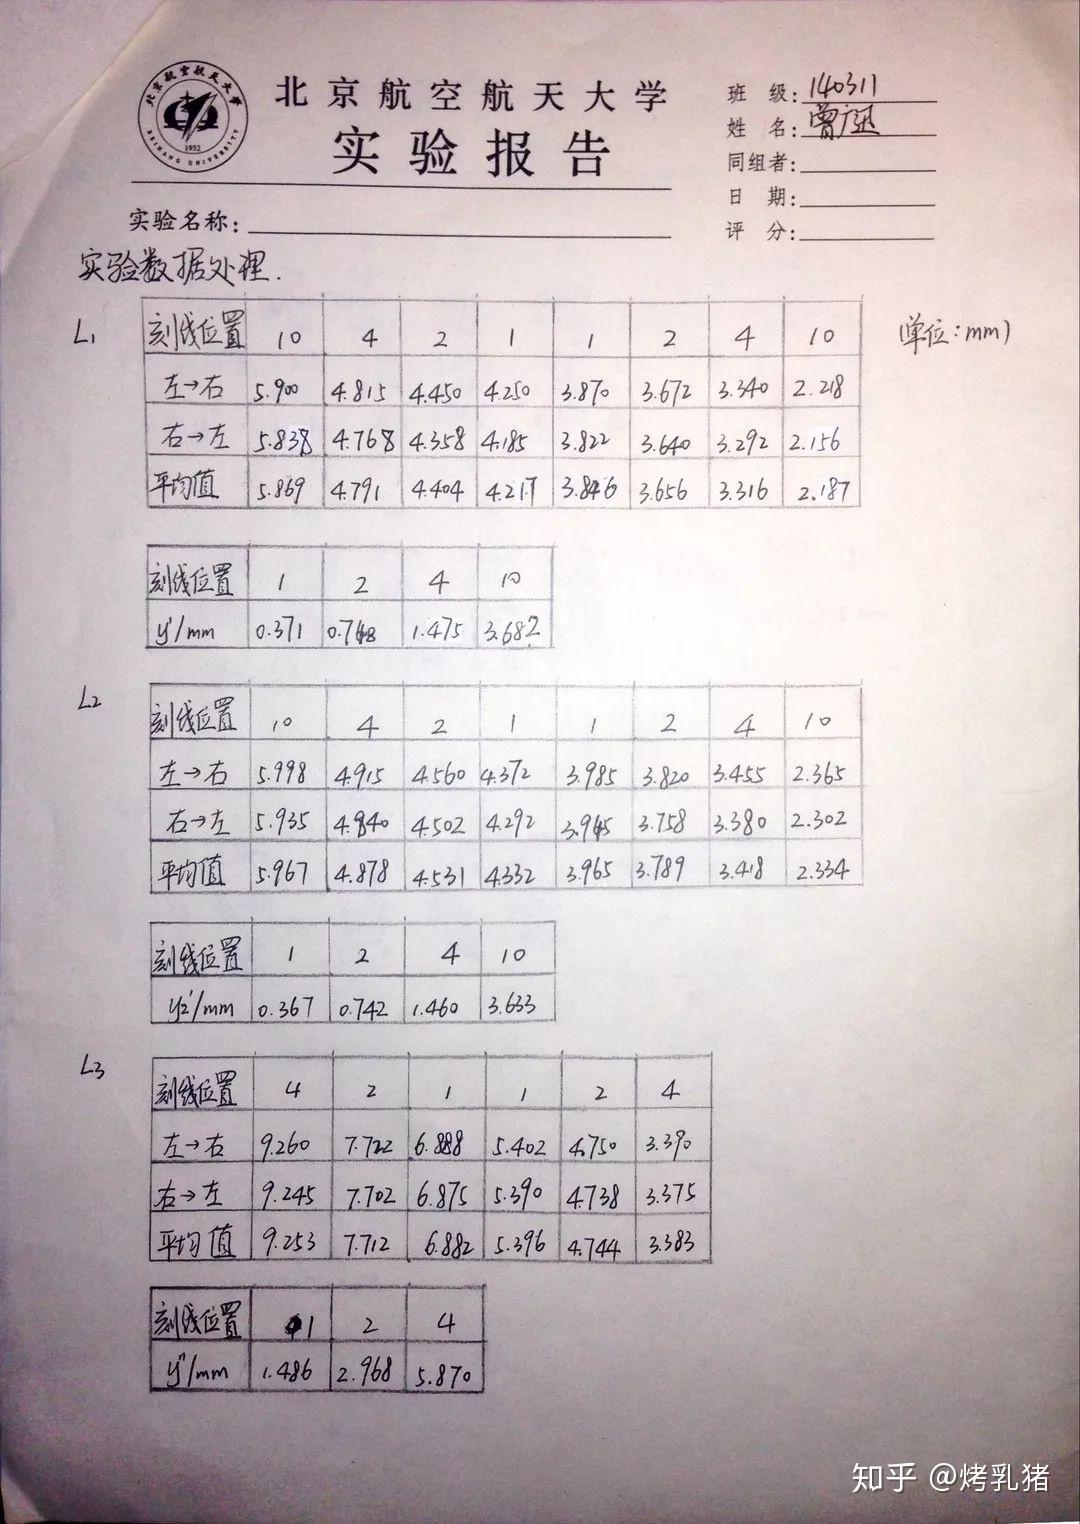 北京航空航天大学
BEIHANG UNIVERSITY
1952
北京航空航天大学
实验报告
班 级: 140311
姓 名:
同组者:
日 期:
评 分:
实验名称:
实验数据处理.
L1 (单位:mm)
刻线位置 10 4 2 1 1 2 4 10
左→右 5.900 4.815 4.450 4.250 3.870 3.672 3.340 2.218
右→左 5.838 4.768 4.358 4.185 3.822 3.640 3.292 2.156
平均值 5.869 4.791 4.404 4.217 3.846 3.656 3.316 2.187
刻线位置 1 2 4 10
y'/mm 0.371 0.748 1.475 3.682
L2
刻线位置 10 4 2 1 1 2 4 10
左→右 5.998 4.915 4.560 4.372 3.985 3.820 3.455 2.365
右→左 5.935 4.840 4.502 4.292 3.945 3.758 3.380 2.302
平均值 5.967 4.878 4.531 4.332 3.965 3.789 3.418 2.334
刻线位置 1 2 4 10
y2'/mm 0.367 0.742 1.460 3.633
L3
刻线位置 4 2 1 1 2 4
左→右 9.260 7.722 6.888 5.402 4.750 3.390
右→左 9.245 7.702 6.875 5.390 4.738 3.375
平均值 9.253 7.712 6.882 5.396 4.744 3.383
刻线位置 1 2 4
y''/mm 1.486 2.968 5.870
知乎 @烤乳猪